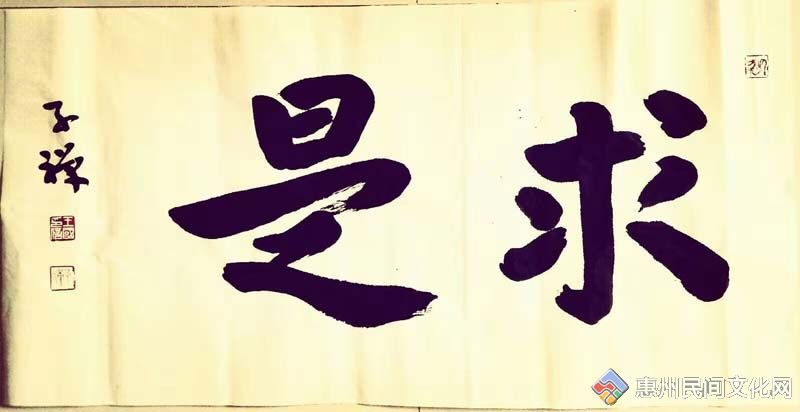 求是
子禅
惠州民间文化网